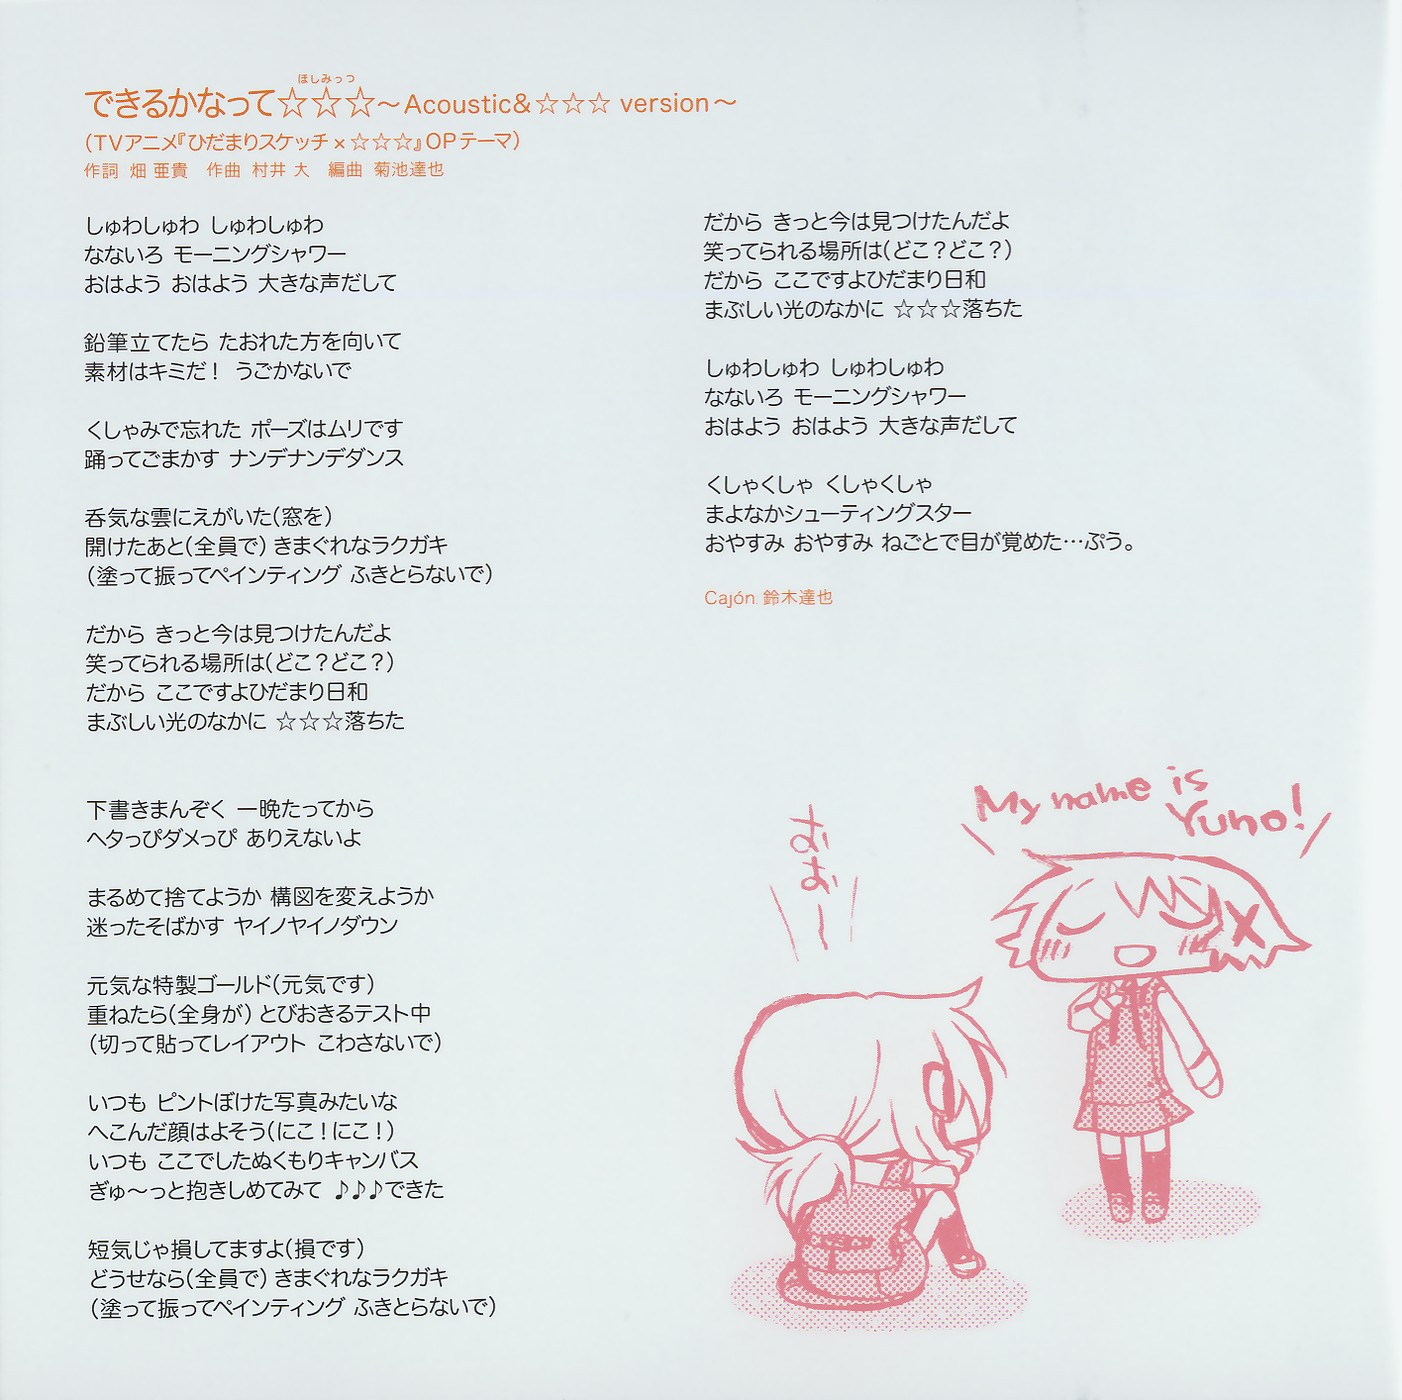 ほしみっつ
できるかなって☆☆☆～Acoustic&☆☆☆ version～
(TVアニメ『ひだまりスケッチ×☆☆☆』OPテーマ)
作詞 畑 亜貴 作曲 村井 大 編曲 菊池達也
しゅわしゅわ しゅわしゅわ
なないろ モーニングシャワー
おはよう おはよう 大きな声だして
鉛筆立てたら たおれた方を向いて
素材はキミだ! うごかないで
くしゃみで忘れた ポーズはムリです
踊ってごまかす ナンデナンデダンス
呑気な雲にえがいた(窓を)
開けたあと(全員で) きまぐれなラクガキ
(塗って振ってペインティング ふきとらないで)
だから きっと今は見つけたんだよ
笑ってられる場所は(どこ?どこ?)
だから ここですよひだまり日和
まぶしい光のなかに ☆☆☆落ちた
下書きまんぞく 一晩たってから
ヘタっぴダメっぴ ありえないよ
まるめて捨てようか 構図を変えようか
迷ったそばかす ヤイノヤイノダウン
元気な特製ゴールド(元気です)
重ねたら(全身が) とびおきるテスト中
(切って貼ってレイアウト こわさないで)
いつも ピントぼけた写真みたいな
へこんだ顔はよそう(にこ!にこ!)
いつも ここでしたぬくもりキャンバス
ぎゅ～っと抱きしめてみて ♪♪♪できた
短気じゃ損してますよ(損です)
どうせなら(全員で) きまぐれなラクガキ
(塗って振ってペインティング ふきとらないで)
だから きっと今は見つけたんだよ
笑ってられる場所は(どこ?どこ?)
だから ここですよひだまり日和
まぶしい光のなかに ☆☆☆落ちた
しゅわしゅわ しゅわしゅわ
なないろ モーニングシャワー
おはよう おはよう 大きな声だして
くしゃくしゃ くしゃくしゃ
まよなかシューティングスター
おやすみ おやすみ ねごとで目が覚めた…ぷう。
Cajón. 鈴木達也
おおー
My name is
Yuno!